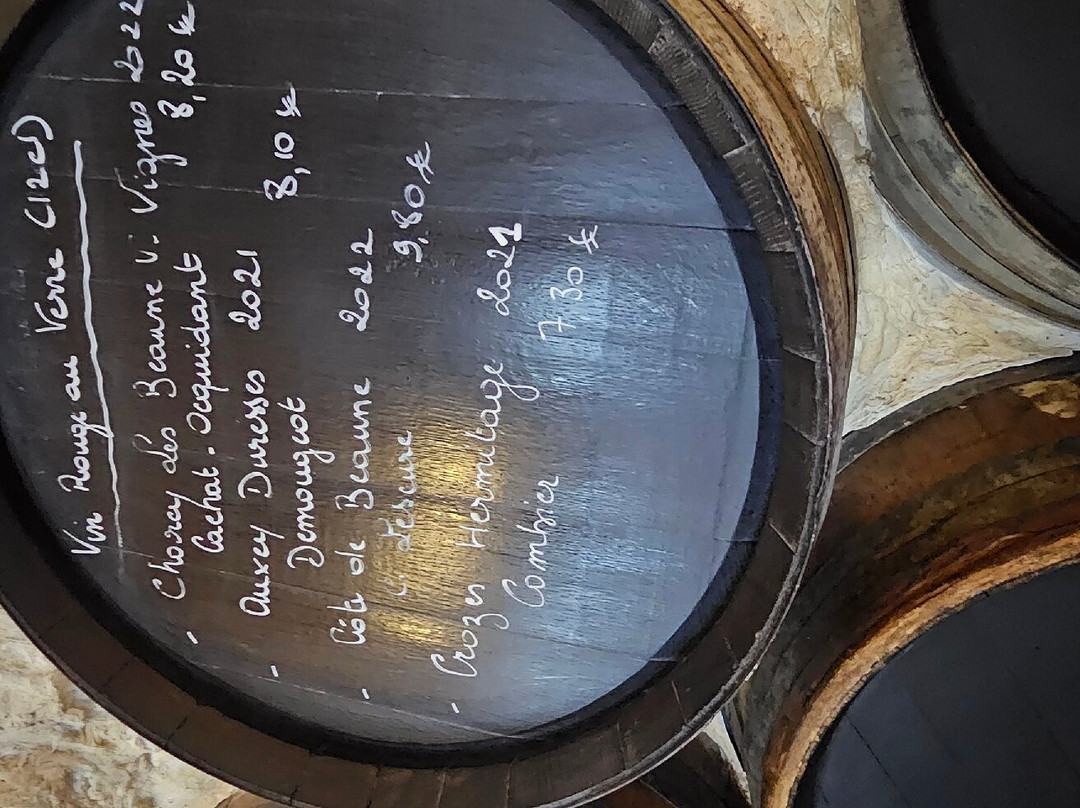 Vin Rouge au Verre (12cl)
- Chorey les Beaune V. Vignes 2022
Cachat-Ocquidant 8,20 €
- Auxey Duresses 2021
Demougeot 8,10 €
- Côte de Beaune 2022
9,80 €
- Crozes Hermitage 2021
Combier 7,30 €